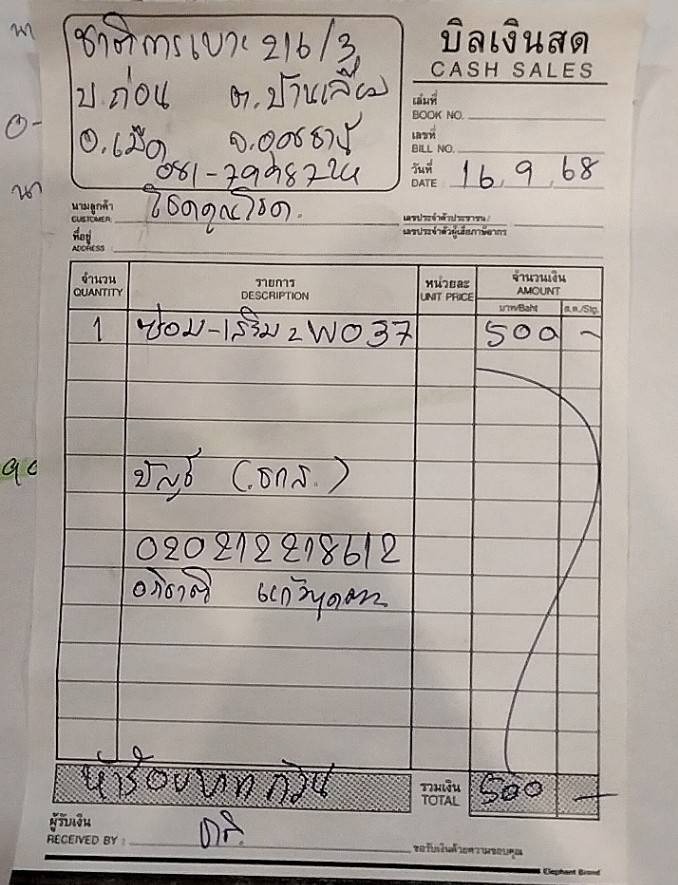 ชาติการเบาะ 216/3
บ.ถ่อน ต.บ้านเลื่อม
อ.เมือง จ.อุดรธานี
081-
บิลเงินสด
CASH SALES
เล่มที่
BOOK NO.
เลขที่
BILL NO.
วันที่
DATE 16.9.68
นามลูกค้า
CUSTOMER
โชคคูณโชค.
เลขประจำตัวประชาชน/
เลขประจำตัวผู้เสียภาษีอากร
ที่อยู่
ADDRESS
จำนวน
QUANTITY
รายการ
DESCRIPTION
หน่วยละ
UNIT PRICE
จำนวนเงิน
AMOUNT
บาท/Baht
ส.ต./Stg.
1 ซ่อม-เสริม 2W037 500 -
บัญชี (.ธกส.)
020212218612
อภิชาติ
ห้าร้อยบาทถ้วน
รวมเงิน
TOTAL
500 -
ผู้รับเงิน
RECEIVED BY :
ชาติ.
ขอรับเงินด้วยความขอบคุณ
Elephant Brand